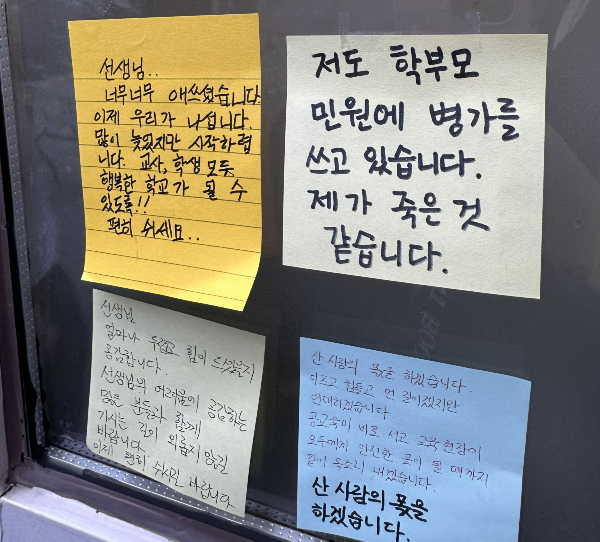 선생님..
너무너무 애쓰셨습니다.
이제 우리가 나섭니다.
많이 늦었지만 시작하렵
니다. 교사, 학생 모두
행복한 학교가 될 수
있도록!!
편히 쉬세요..
저도 학부모
민원에 병가를
쓰고 있습니다.
제가 죽은 것
같습니다.
선생님
얼마나 두렵고 힘이 드셨을지
공감합니다.
선생님의 어려움에 공감하는
많은 분들과 함께
가시는 길이 외롭지 않길
바랍니다.
이제 편히 쉬시길 바랍니다.
산 사람의 몫을 하겠습니다.
아프고 힘들고 먼 길이겠지만
연대하겠습니다.
공교육이 바로 서고 교육현장이
모두에게 안전한 곳이 될 때까지
같이 목소리 내겠습니다.
산 사람의 몫을
하겠습니다.